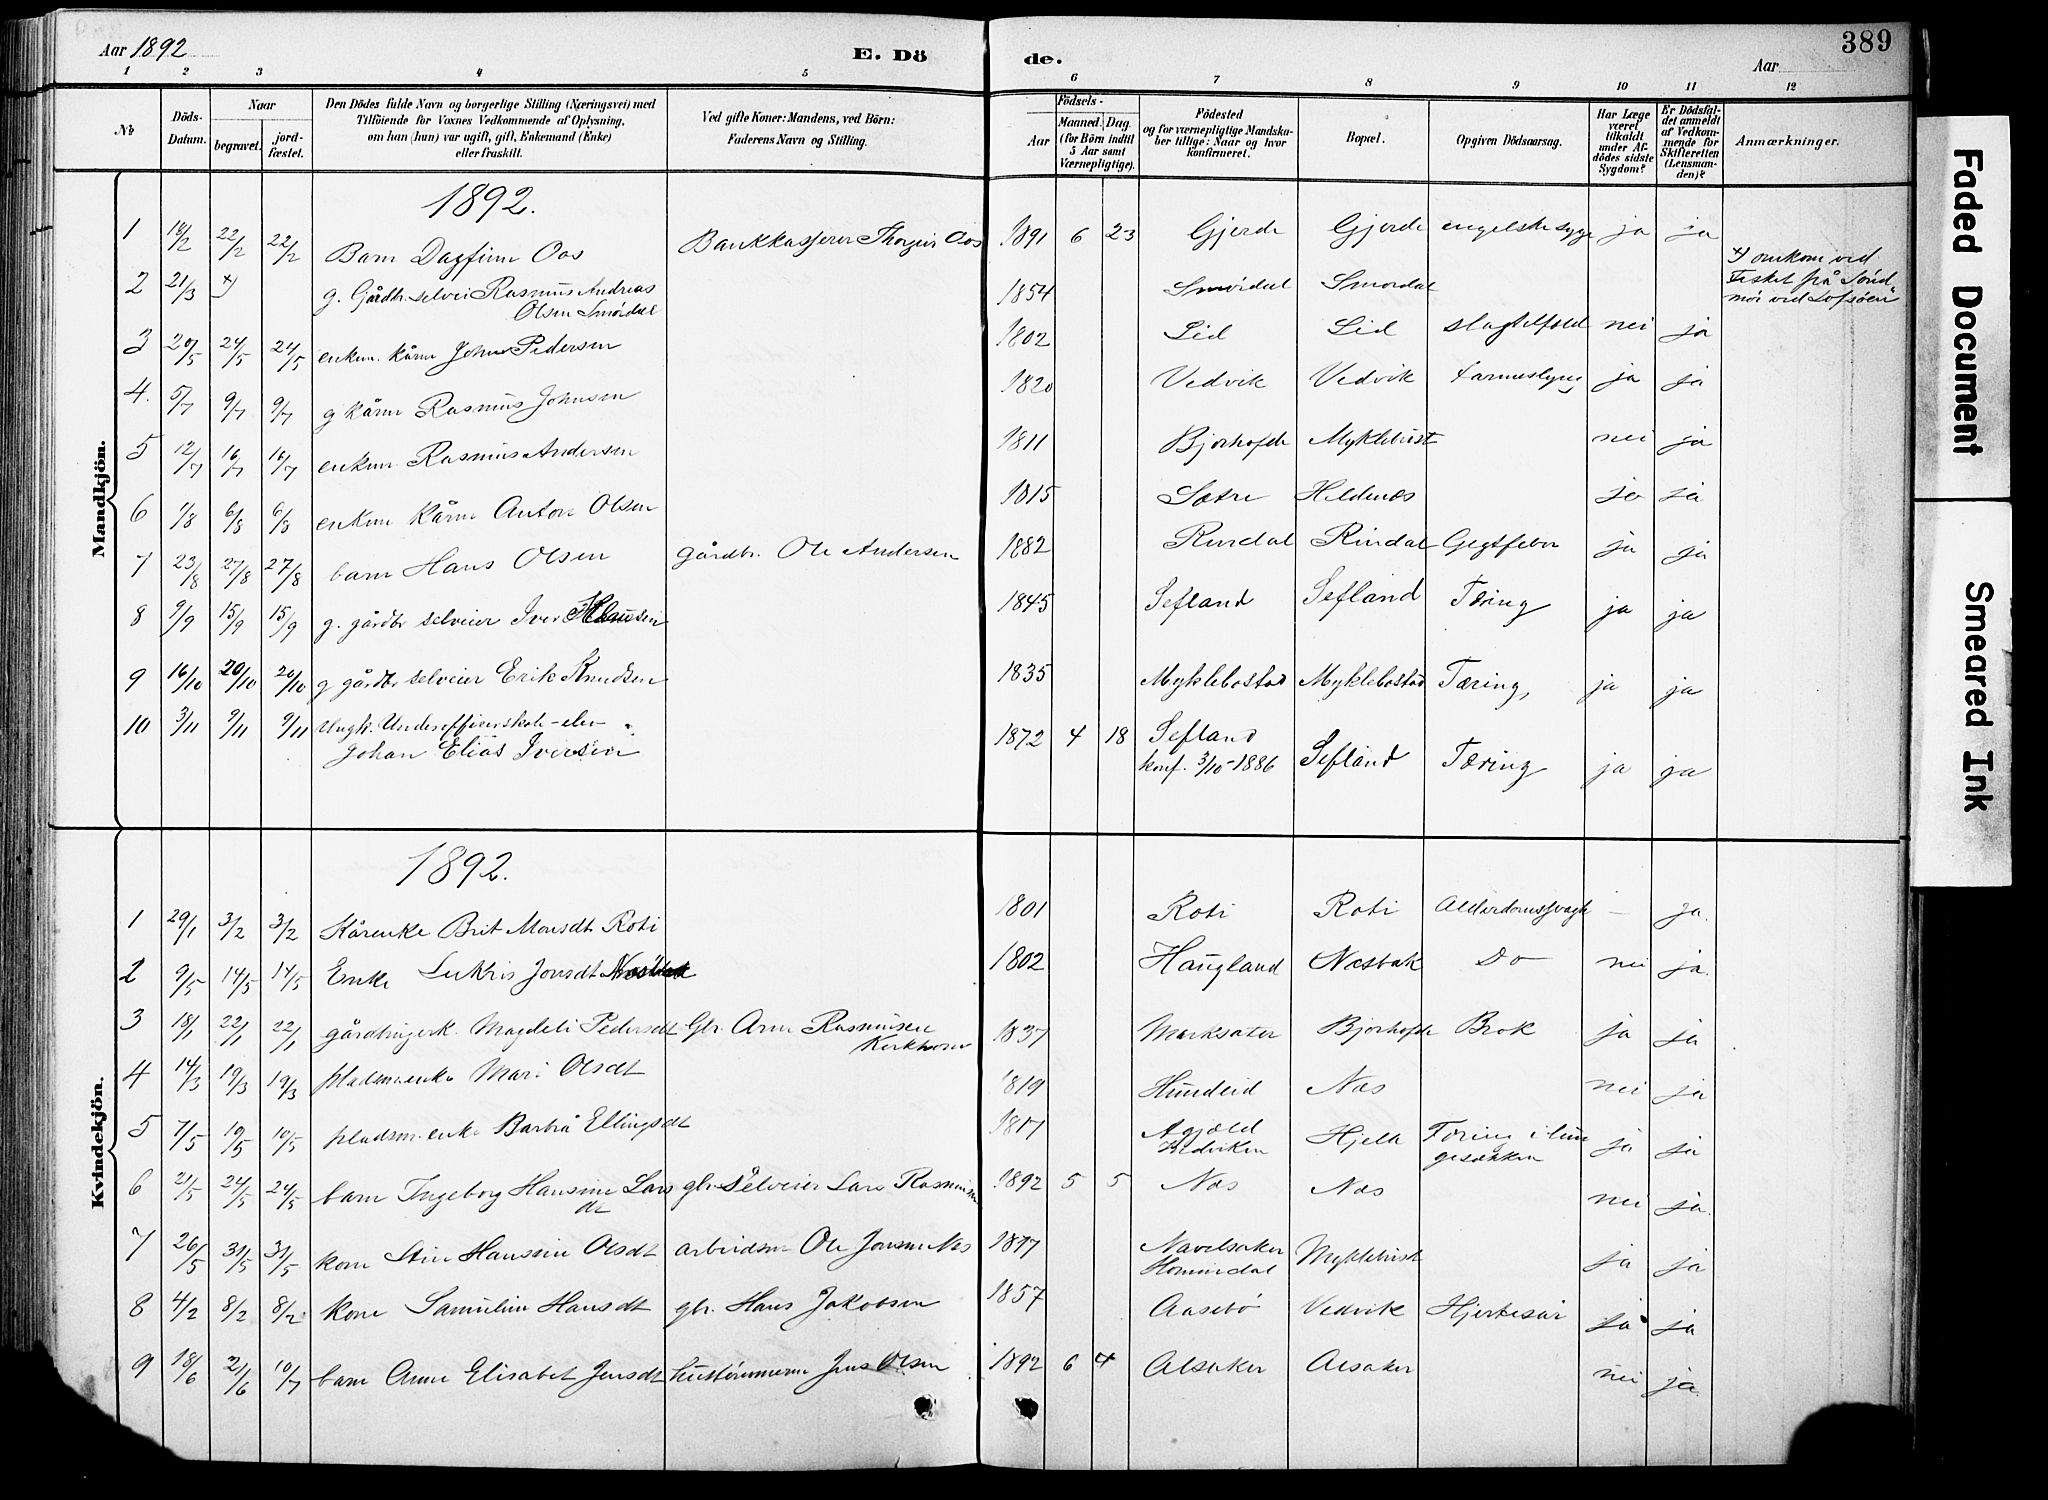 Aar 1892
E. Dö
de.
Aar
389
1 2 3 4 5 6 7 8 9 10 11 12
No
Döds-Datum.
Naar
begravet.
jord-fæstet.
Den Dödes fulde Navn og borgerlige Stilling (Næringsvei) med
Tilföiende for Voxnes Vedkommende af Oplysning,
om han (hun) var ugift, gift, Enkemand (Enke)
eller fraskilt.
Ved gifte Koner: Mandens, ved Börn:
Faderens Navn og Stilling.
Födsels-
Aar
Maaned. Dag.
(for Börn indtil
5 Aar samt
Værnepligtige).
Födested
og for værnepligtige Mandska-
ber tillige: Naar og hvor
konfirmeret.
Bopæl.
Opgiven Dödsaarsag.
Har Læge
været
tilkaldt
under Af-
dödes sidste
Sygdom?
Er Dödsfal-
det anmeldt
af Vedkom-
mende for
Skifteretten
(Lensman-
den)?
Anmærkninger.
Mandkjön.
1892.
1 18/2 22/2 22/2 Barn Dagfinn Oos Bankkasserer Thorgeir Oos 1891 6 23 Gjerde Gjerde engelske syge ja ja
2 21/3 x) g. Gårdbr. selvei Rasmus Andreas
Olsen Smørdal 1854 Smørdal Smørdal x) omkom ved
Fisket frå Sönd-
mör ved
3 20/5 24/5 24/5 enkem. kårm Johns Pedersen 1802 Lid Lid slagtilfæld nei ja
4. 5/7 9/7 9/7 g kårm Rasmus Johnsen 1820 Vedvik Vedvik ja ja
5 12/7 16/7 16/7 enkem. Rasmus Andersen 1811 Bjorhofde Myklebust nei ja
6 1/8 6/8 6/8 enkem kårm Anton Olsen 1815 Sætre Heldenæs ja ja
7 23/8 27/8 27/8 barn Hans Olsen gårdbr. Ole Andersen 1882 Rindal Rindal Gigtfeber ja ja
8 9/9 15/9 15/9 g. gårdbr selveier Iver 1845 Sefland Sefland Tæring ja ja
9 16/10 20/10 20/10 g gårdbr selveier Erik Knudsen 1835 Myklebostad Myklebostad Tæring, ja ja
10 3/11 9/11 9/11 Ungk. Underofficerskole-elev
Johan Elias Iversen 1872 4 18 Sefland
konf. 3/10-1886 Sefland Tæring ja ja
Kvindekjön.
1892.
1 29/1 3/2 3/2 Kårenke Brit Monsdt Roti 1801 Roti Roti Alderdomssvagh — ja.
2 9/5 14/5 14/5 Enke Lukris Jonsdt Næsbak 1802 Haugland Næsbak Do nei ja.
3 18/1 22/1 22/1 gårdbrugerk. Magdeli Pedersdt Gbr. Arne Rasmusen
1837 Marksæter Bjorhofde Brok ja ja
4 14/3 19/3 19/3 pladsmenke Mari Olsdt 1819 Hundeid Næs nei ja
5 7/5 10/5 10/5 pladsm.enke Barbra Ellingsdt 1817 Hjelle Tæring i lun
gesækken ja ja
6 21/5 24/5 24/5 barn Ingeborg Hansine Lars
dt gbr Selveier Lars Rasmusen 1892 5 5 Næs Næs nei ja.
7 26/5 31/5 31/5 kone Stine Hanssine Olsdt arbeidsm Ole Jonsen Næs Navelsaker
Hornindal Myklebust ja ja
8 4/2 8/2 8/2 kone Samuline Hansdt gbr. Hans Jakobsen 1857 Aasebö Vedvik Hjertesår ja ja
9 18/6 21/6 10/7 barn Anne Elisabet Jensdt hustømmerm Jens Olsen 1892 6 4 Alsaker Alsaker nei ja.
Faded Document
Smeared Ink